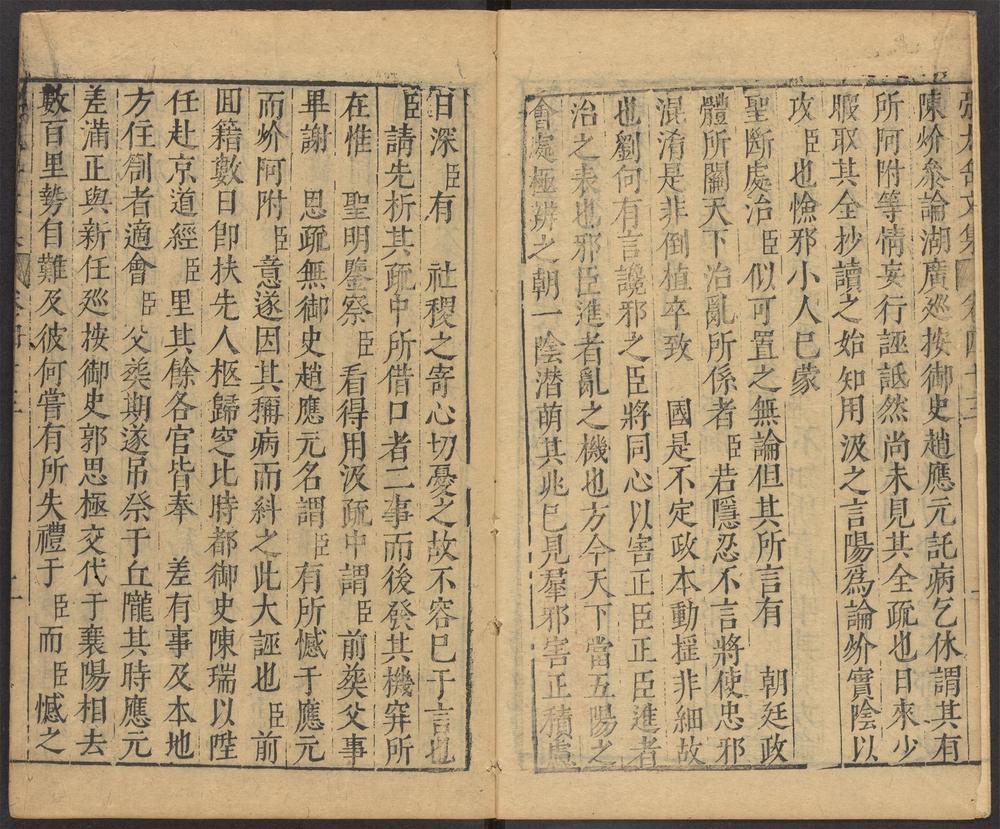 張太岳文集 卷四十三
陳炌參論湖廣巡按御史趙應元託病乞休謂其有
所阿附等情妄行誣詆然尚未見其全疏也日來少
暇取其全抄讀之始知用汲之言陽為論炌實陰以
攻臣也憸邪小人已蒙
聖斷處治臣似可置之無論但其所言有 朝廷政
體所關天下治亂所係者臣若隱忍不言將使忠邪
混淆是非倒植卒致 國是不定政本動搖非細故
也劉向有言讒邪之臣將同心以害正臣正臣進者
治之表也邪臣進者亂之機也方今天下當五陽之
會處極辨之朝一陰潛萌其兆已見羣邪害正積慮
日深臣有 社稷之寄心切憂之故不容已于言也
臣請先析其疏中所借口者二事而後發其機穽所
在惟 聖明鑒察臣看得用汲疏中謂臣前葬父事
畢謝 恩疏無御史趙應元名謂臣有所憾于應元
而炌阿附臣意遂因其稱病而糾之此大誣也臣前
回籍數日卽扶先人柩歸窆比時都御史陳瑞以陞
任赴京道經臣里其餘各官皆奉 差有事及本地
方住劄者適會臣父葬期遂吊祭于丘隴其時應元
差滿正與新任巡按御史郭思極交代于襄陽相去
數百里勢自難及彼何嘗有所失禮于臣而臣憾之